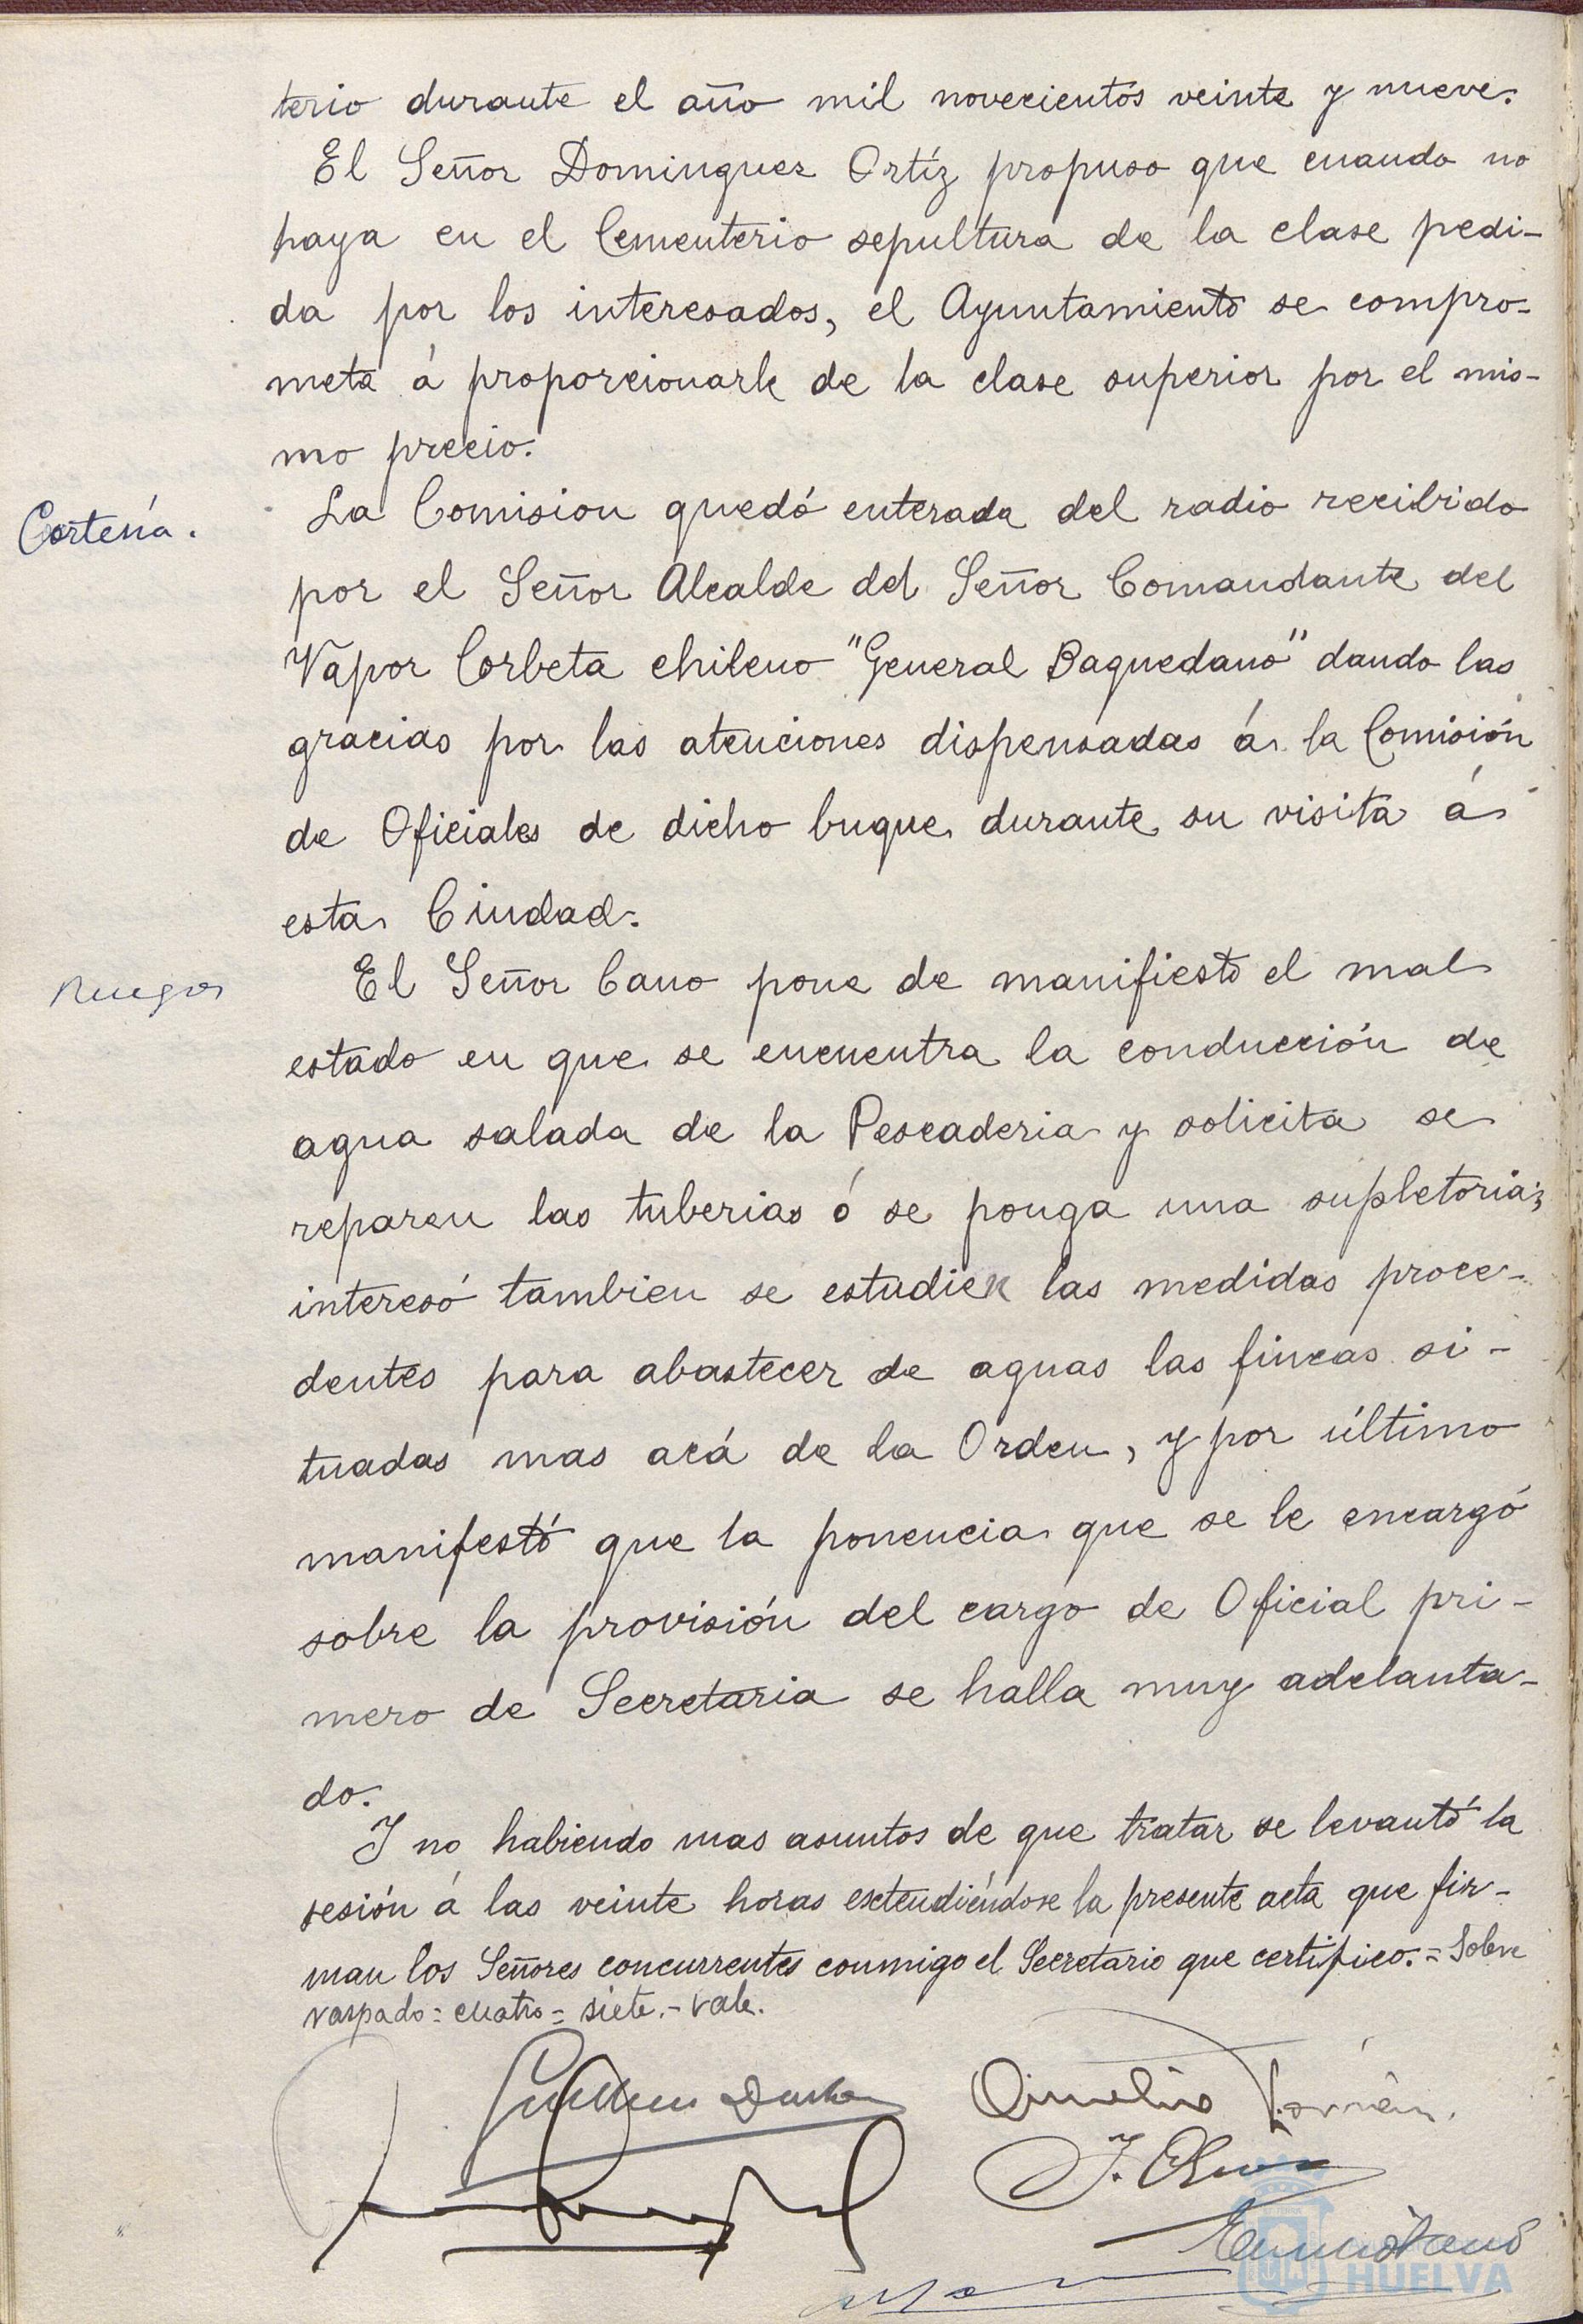 terio durante el año mil novecientos veinte y nueve.
El Señor Dominguez Ortíz propuso que cuando no
haya en el Cementerio sepultura de la clase pedi-
da por los interesados, el Ayuntamiento se compro-
meta á proporcionarle de la clase superior por el mis-
mo precio.
Cortesía.
La Comision quedó enterada del radio recibido
por el Señor Alcalde del Señor Comandante del
Vapor Corbeta chileno "General Baquedano" dando las
gracias por las atenciones dispensadas á la Comisión
de Oficiales de dicho buque durante su visita á
esta Ciudad.
Ruegos
El Señor Cano pone de manifiesto el mal
estado en que se encuentra la conducción de
agua salada de la Pescaderia y solicita se
reparen las tuberias ó se ponga una supletoria;
interesó tambien se estudien las medidas proce-
dentes para abastecer de aguas las fincas si-
tuadas mas acá de la Orden, y por último
manifestó que la ponencia que se le encargó
sobre la provisión del cargo de Oficial pri-
mero de Secretaria se halla muy adelanta-
do.
Y no habiendo mas asuntos de que tratar se levantó la
sesión á las veinte horas extendiéndose la presente acta que fir-
man los Señores concurrentes conmigo el Secretario que certifico.=Sobre
raspado=cuatro=siete.-Vale.
J.
HUELVA